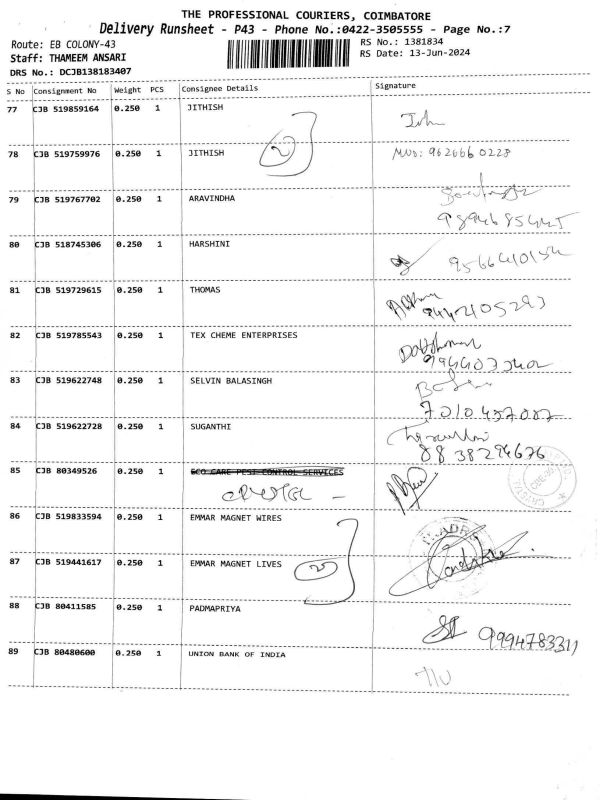 THE PROFESSIONAL COURIERS, COIMBATORE
Delivery Runsheet - P43 - Phone No.:0422-3505555 - Page No.:7
Route: EB COLONY-43 RS No.: 1381834
Staff: THAMEEM ANSARI RS Date: 13-Jun-2024
DRS No.: DCJB138183407
S No Consignment No Weight PCS Consignee Details Signature
77 CJB 519859164 0.250 1 JITHISH
78 CJB 519759976 0.250 1 JITHISH 9626660228
2
79 CJB 519767702 0.250 1 ARAVINDHA
80 CJB 518745306 0.250 1 HARSHINI
81 CJB 519729615 0.250 1 THOMAS
9442105293
82 CJB 519785543 0.250 1 TEX CHEME ENTERPRISES
83 CJB 519622748 0.250 1 SELVIN BALASINGH
84 CJB 519622728 0.250 1 SUGANTHI
8838294676
85 CJB 80349526 0.250 1 ECO CARE PEST CONTROL SERVICES
86 CJB 519833594 0.250 1 EMMAR MAGNET WIRES
87 CJB 519441617 0.250 1 EMMAR MAGNET LIVES
2
88 CJB 80411585 0.250 1 PADMAPRIYA
9994783311
89 CJB 80480600 0.250 1 UNION BANK OF INDIA